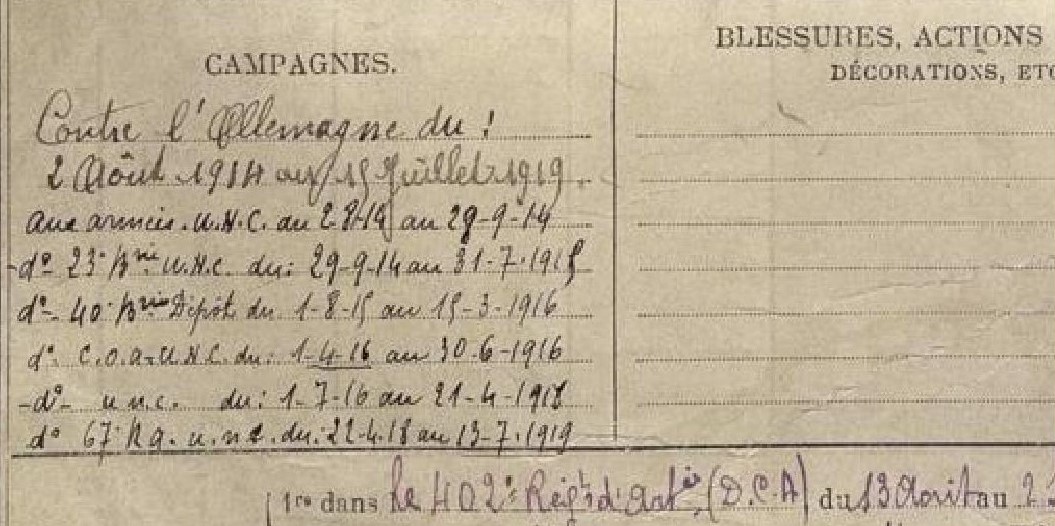 CAMPAGNES.
BLESSURES, ACTIONS
DÉCORATIONS, ETC
Contre l'Allemagne du :
2 Août 1914 au 15 Juillet 1919.
aux armées. U.N.C. du 2-8-14 au 29-9-14
-d° 23e Brie U.N.C. du: 29-9-14 au 31-7-1915
d°- 40e Brie Dépôt du 1-8-15 au 15-3-1916
d°. C.O.A. U.N.C. du: 1-4-16 au 30-6-1916
-d°- u.n.c. du: 1-7-16 au 21-4-1918
d° 67e R.A. u.n.c. du: 22-4-18 au 13-7-1919
1re dans le 402e Régt d'Artie (D.C.A) du 13 Août au 2